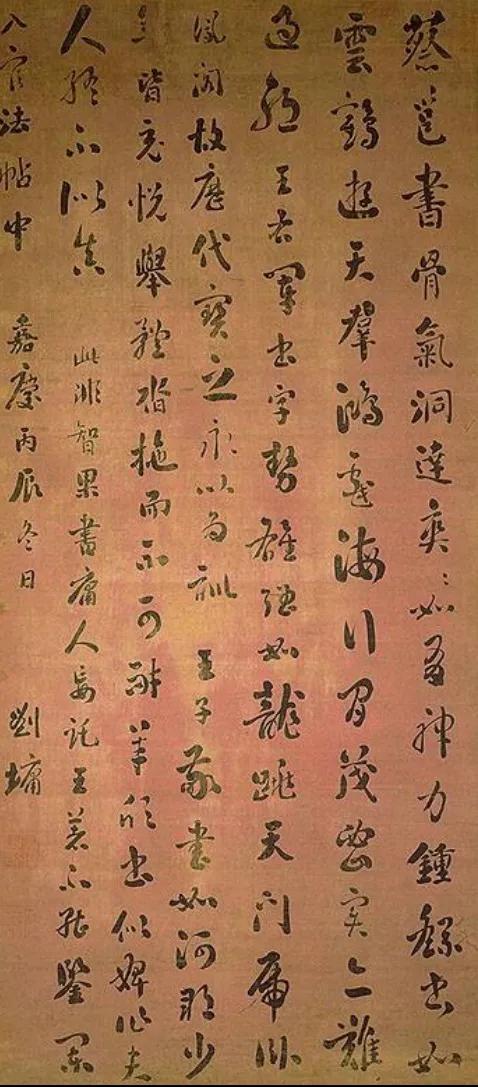 蔡邕書骨氣洞達爽〻如有神力鍾繇書如
雲鶴遊天群鴻戲海行間茂密實亦難
過耶王右軍書字勢雄強如龍跳天門虎臥
鳳閣故歷代寶之永以為訓 王子敬書如河朔少
年皆充悅舉體沓拖而不可耐羊欣書似婢作夫
人終不似真 此非智果書庸人妄託王著不能鑒闌
入官法帖中 嘉慶丙辰冬日 劉墉